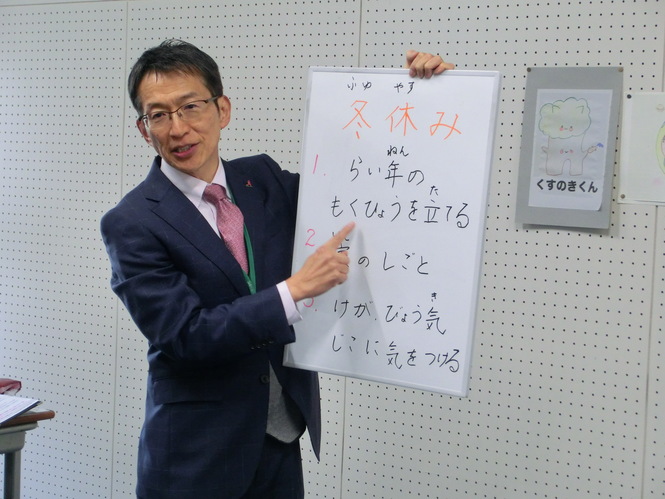 ふゆ やす
冬休み
ねん
1. らい年の
た
もくひょうを立てる
2. のしごと
き
3. けが、びょう気
じこに気をつける
くすのきくん